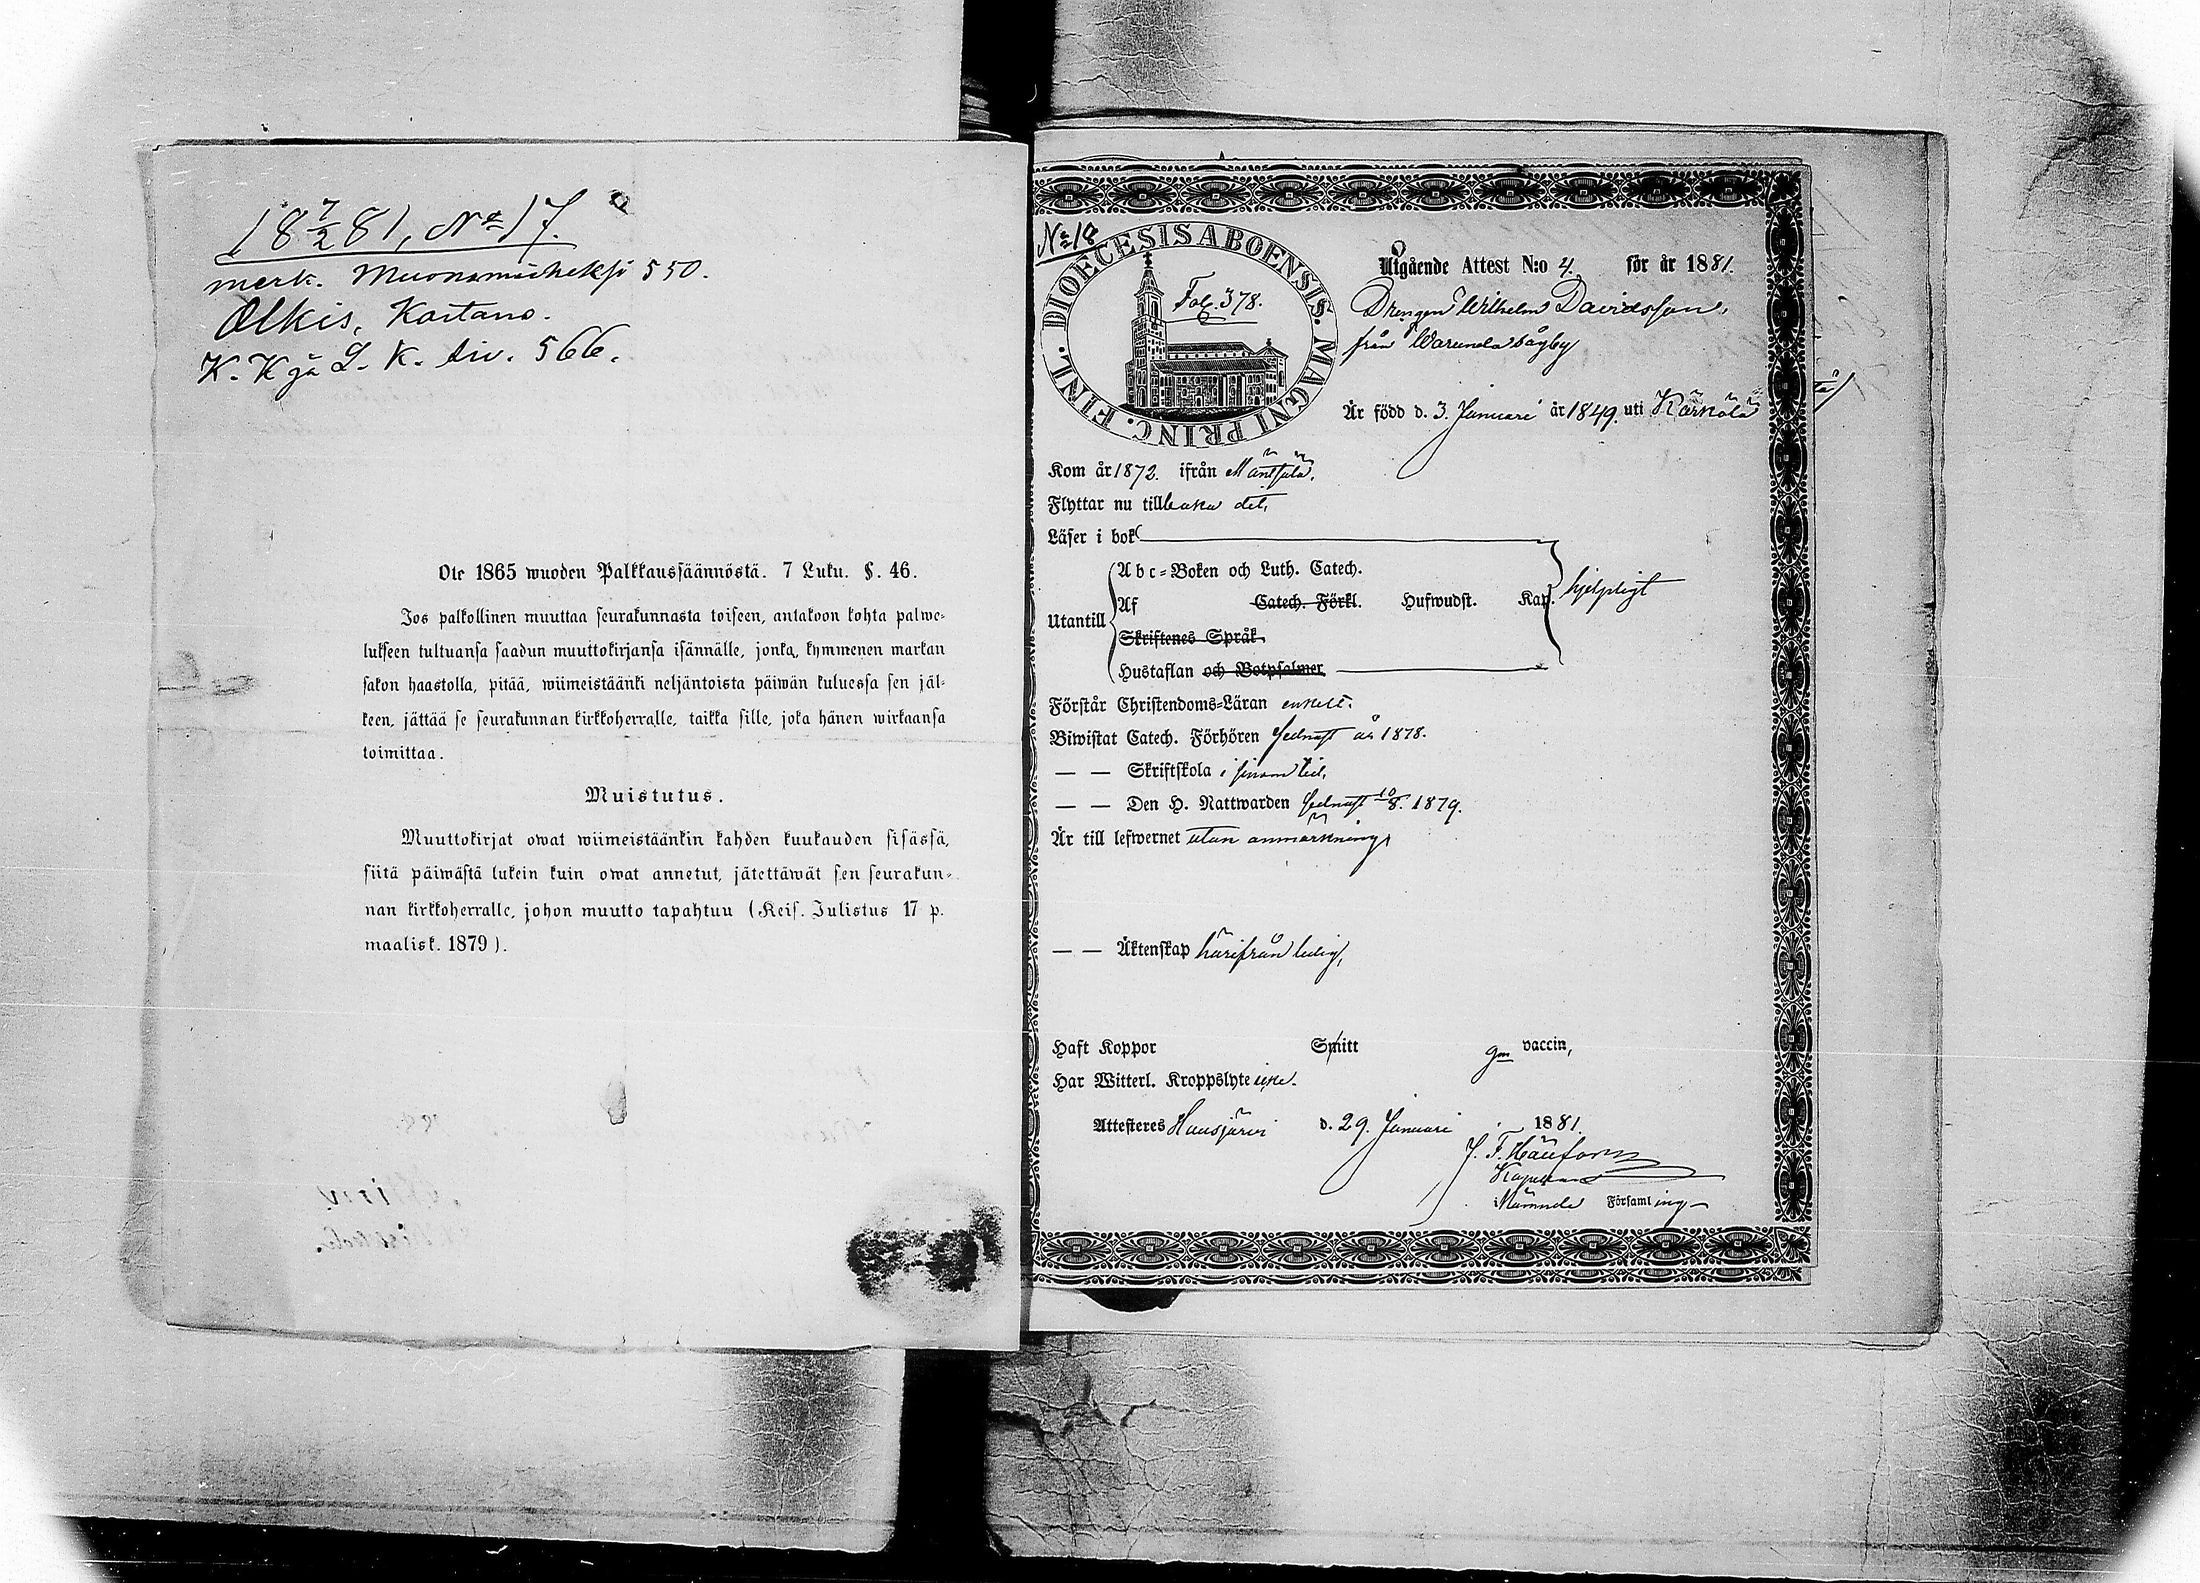 18 7/2 81, No 17.
merk. Muonamieheksi 550.
Olkis, Kartano.
K. K ja L. K. siv. 566.
Ote 1865 wuoden Palkkaussäännöstä. 7 Luku. §. 46.
Jos palkollinen muuttaa seurakunnasta toiseen, antakoon kohta palwe-
lukseen tultuansa saadun muuttokirjansa isännälle, jonka, kymmenen markan
sakon haastolla, pitää, wiimeistäänki neljäntoista päiwän kuluessa sen jäl-
keen, jättää se seurakunnan kirkkoherralle, taikka sille, joka hänen wirkaansa
toimittaa.
Muistutus.
Muuttokirjat owat wiimeistäänkin kahden kuukauden sisässä,
siitä päiwästä lukein kuin owat annetut, jätettäwät sen seurakun-
nan kirkkoherralle, johon muutto tapahtuu (Keis. Julistus 17 p.
maalisk. 1879).
No 18
DIOECESIS ABOENSIS. MAGNI PRINC. FINL.
Fol. 378.
Utgående Attest N:o 4. för år 1881.
Drengen Wilhelm Davidsson,
från Warunda bågby
Är född d. 3. Januari år 1849. uti Kärkölä
Kom år 1872. ifrån Mäntsälä.
Flyttar nu tillbaka dit,
Läser i bok
Abc-Boken och Luth. Catech.
Utantill Af Catech. Förkl. Hufwudst. Kap. hjelpligt
Skriftenes Språk.
Hustaflan och Botpsalmer.
Förstår Christendoms-Läran enkelt.
Biwistat Catech. Förhören sednast år 1878.
— — Skriftskola i sinom tid,
— — Den H. Nattwarden sednast 10/8. 1879.
Är till lefwernet utan anmärkning,
— — Äktenskap härifrån ledig,
Haft Koppor Smitt gm vaccin,
Har Witterl. Kroppslyte icke.
Attesteres Hausjärvi d. 29. Januari 1881.
J. F.
Kapellan
Församling